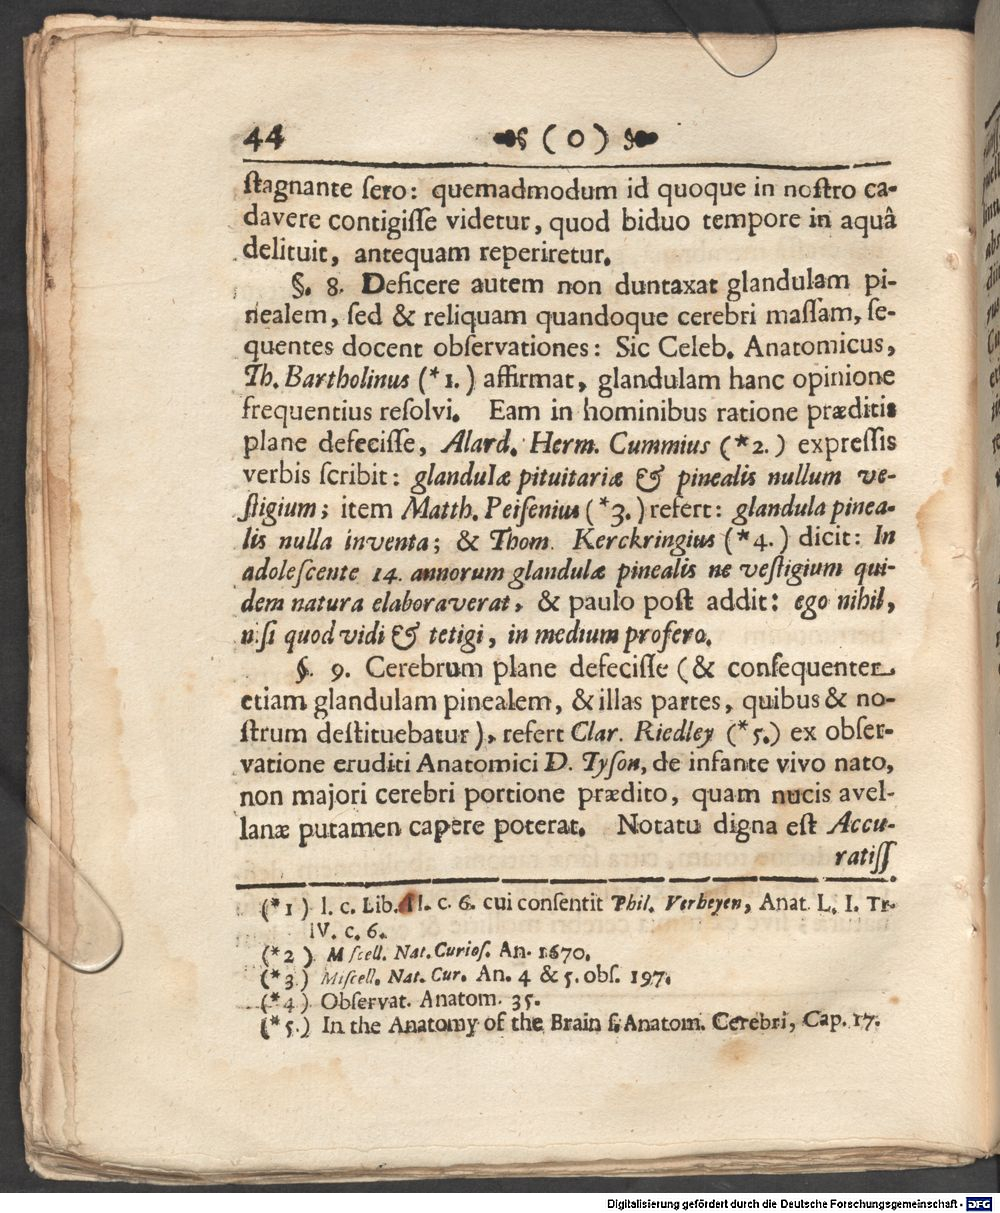 44 ( o )
ſtagnante ſero: quemadmodum id quoque in noſtro ca-
davere contigiſſe videtur, quod biduo tempore in aquâ
delituit, antequam reperiretur.
§. 8. Deficere autem non duntaxat glandulam pi-
nealem, ſed & reliquam quandoque cerebri maſſam, ſe-
quentes docent obſervationes: Sic Celeb. Anatomicus,
Th. Bartholinus (*1.) affirmat, glandulam hanc opinione
frequentius reſolvi. Eam in hominibus ratione præditis
plane defeciſſe, Alard. Herm. Cummius (*2.) expreſſis
verbis ſcribit: glandulæ pituitariæ & pinealis nullum ve-
ſtigium; item Matth. Peiſenius (*3.) refert: glandula pinea-
lis nulla inventa; & Thom. Kerckringius (*4.) dicit: In
adoleſcente 14. annorum glandulæ pinealis ne veſtigium qui-
dem natura elaboraverat, & paulo poſt addit: ego nihil,
niſi quod vidi & tetigi, in medium profero.
§. 9. Cerebrum plane defeciſſe (& conſequenter
etiam glandulam pinealem, & illas partes, quibus & no-
ſtrum deſtituebatur), refert Clar. Riedley (*5.) ex obſer-
vatione eruditi Anatomici D. Tyſon, de infante vivo nato,
non majori cerebri portione prædito, quam nucis avel-
lanæ putamen capere poterat. Notatu digna eſt Accu-
ratiſſ
(*1) l. c. Lib. II. c. 6. cui conſentit Phil. Verheyen, Anat. L. I. Tr.
IV. c. 6.
(*2) Miſcell. Nat. Curioſ. An. 1670.
(*3) Miſcell. Nat. Cur. An. 4 & 5. obſ. 197.
(*4) Obſervat. Anatom. 35.
(*5.) In the Anatomy of the Brain ſ. Anatom. Cerebri, Cap. 17.
Digitalisierung gefördert durch die Deutsche Forschungsgemeinschaft - DFG